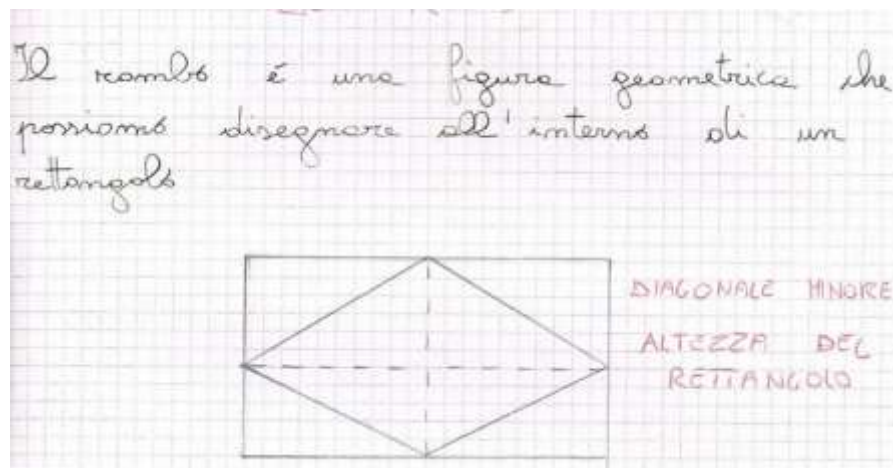 Il rombo è una figura geometrica che
possiamo disegnare all'interno di un
rettangolo
DIAGONALE MINORE
ALTEZZA DEL
RETTANGOLO